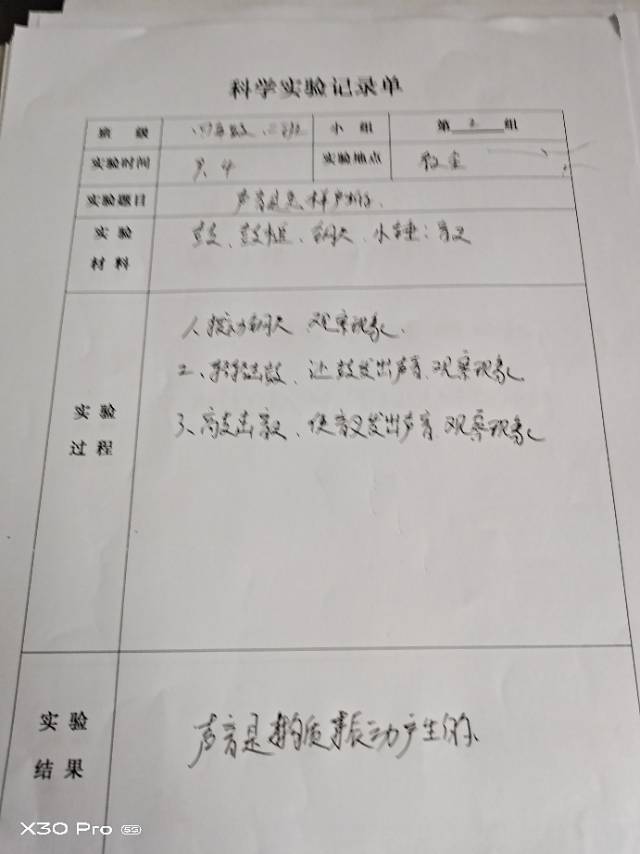 科学实验记录单
班 级 四年级 二班 小 组 第 组
实验时间 9.4 实验地点 教室
实验题目 声音是怎样产生的.
实 验 鼓、鼓棍、钢尺、小锤：音叉
材 料
1、拨动钢尺 观察现象.
2、轻轻击鼓、让鼓发出声音.观察现象
实 验
3、敲击音叉、使音叉发出声音.观察现象
过 程
实 验 声音是物质振动产生的、
结 果
X30 Pro 5G